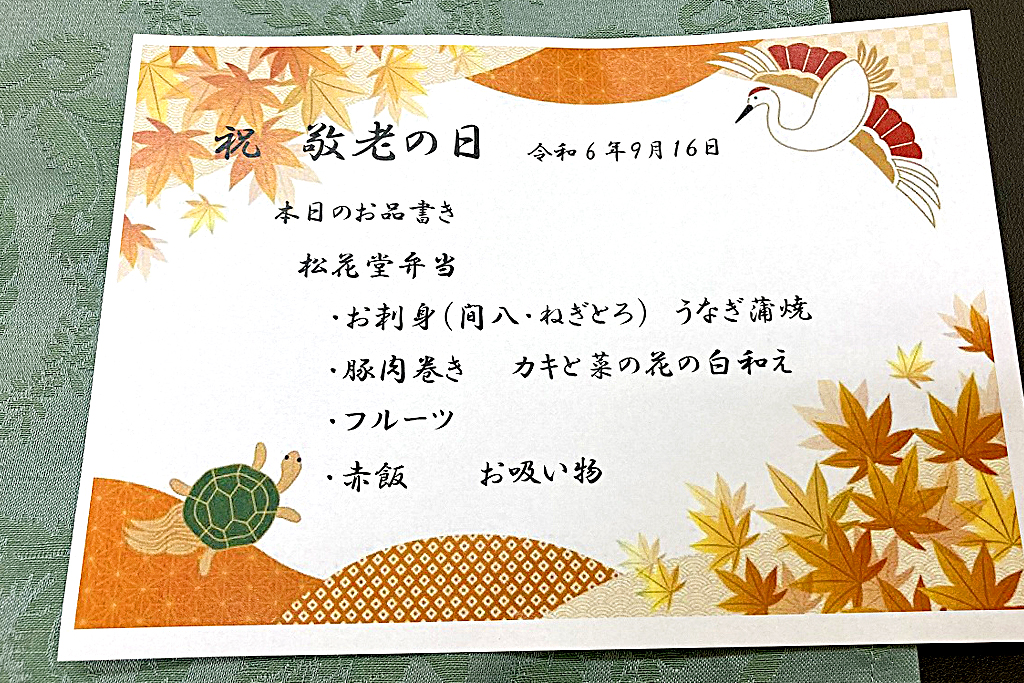 祝 敬老の日 令和6年9月16日
本日のお品書き
松花堂弁当
・お刺身(間八・ねぎとろ) うなぎ蒲焼
・豚肉巻き カキと菜の花の白和え
・フルーツ
・赤飯 お吸い物